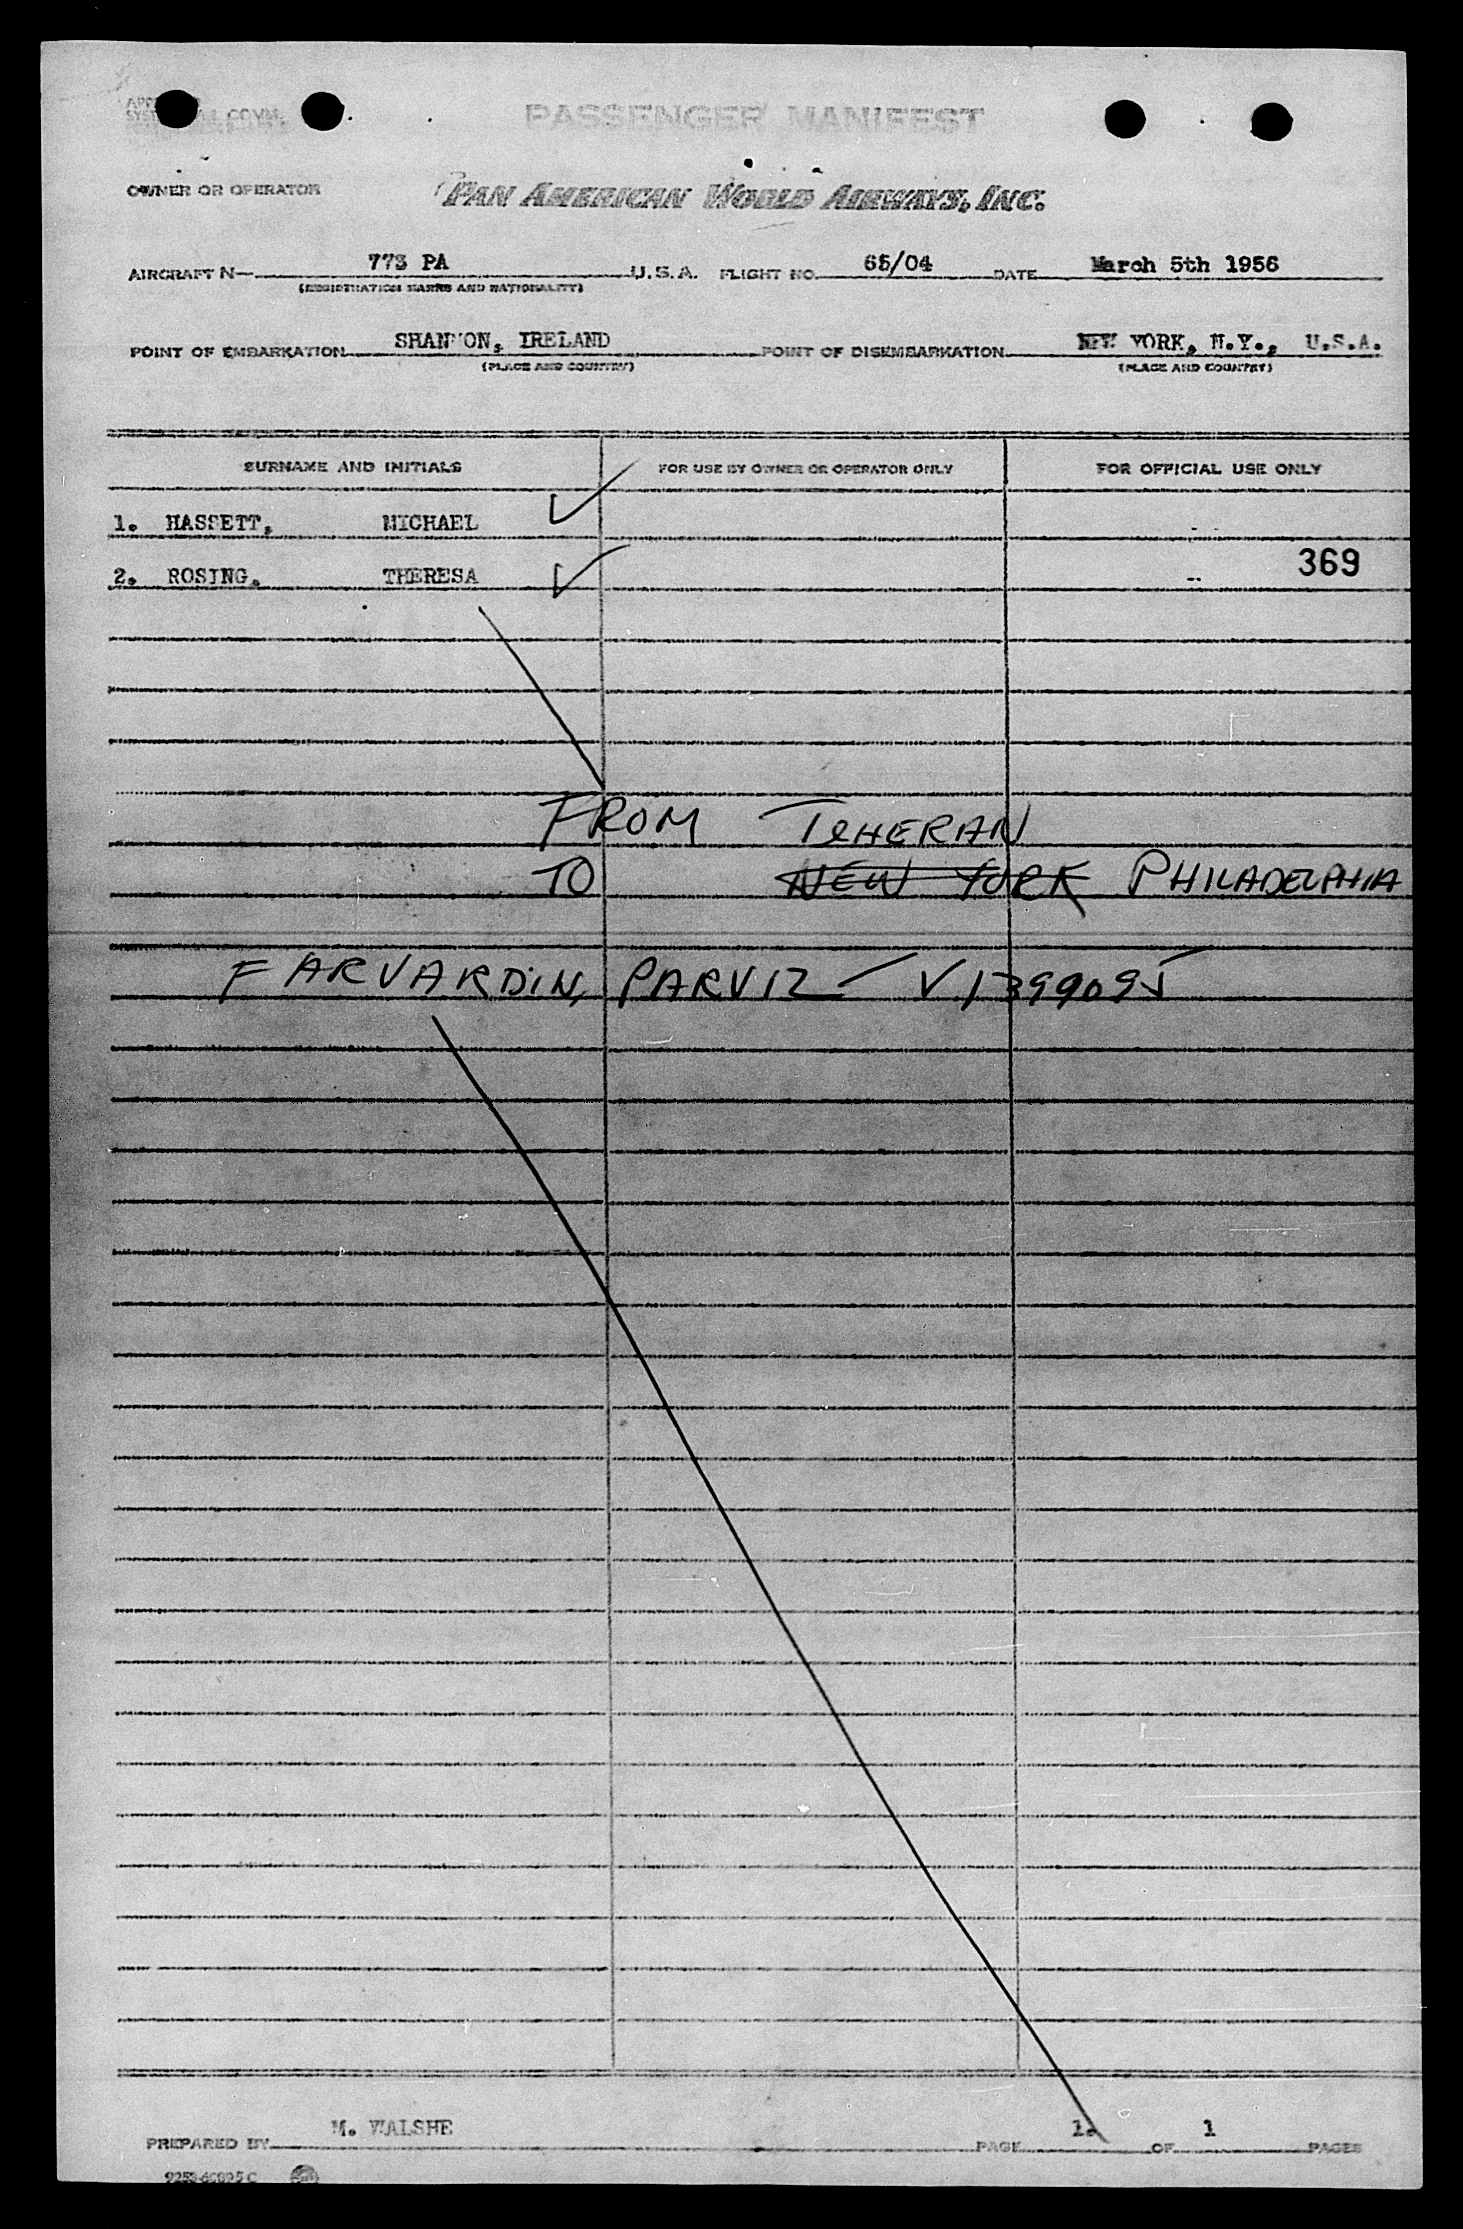 PASSENGER MANIFEST
OWNER OR OPERATOR PAN AMERICAN WORLD AIRWAYS, INC.
AIRCRAFT N— 773 PA U.S.A. FLIGHT NO. 65/04 DATE March 5th 1956
(REGISTRATION MARKS AND NATIONALITY)
POINT OF EMBARKATION SHANNON, IRELAND POINT OF DISEMBARKATION NEW YORK, N.Y., U.S.A.
(PLACE AND COUNTRY) (PLACE AND COUNTRY)
SURNAME AND INITIALS FOR USE BY OWNER OR OPERATOR ONLY FOR OFFICIAL USE ONLY
1. HASSETT, MICHAEL
2. ROSING. THERESA 369
FROM TEHERAN
TO NEW YORK PHILADELPHIA
FARVARDIN, PARVIZ — V1399095
M. WALSHE
PREPARED BY PAGE 1. OF 1 PAGES